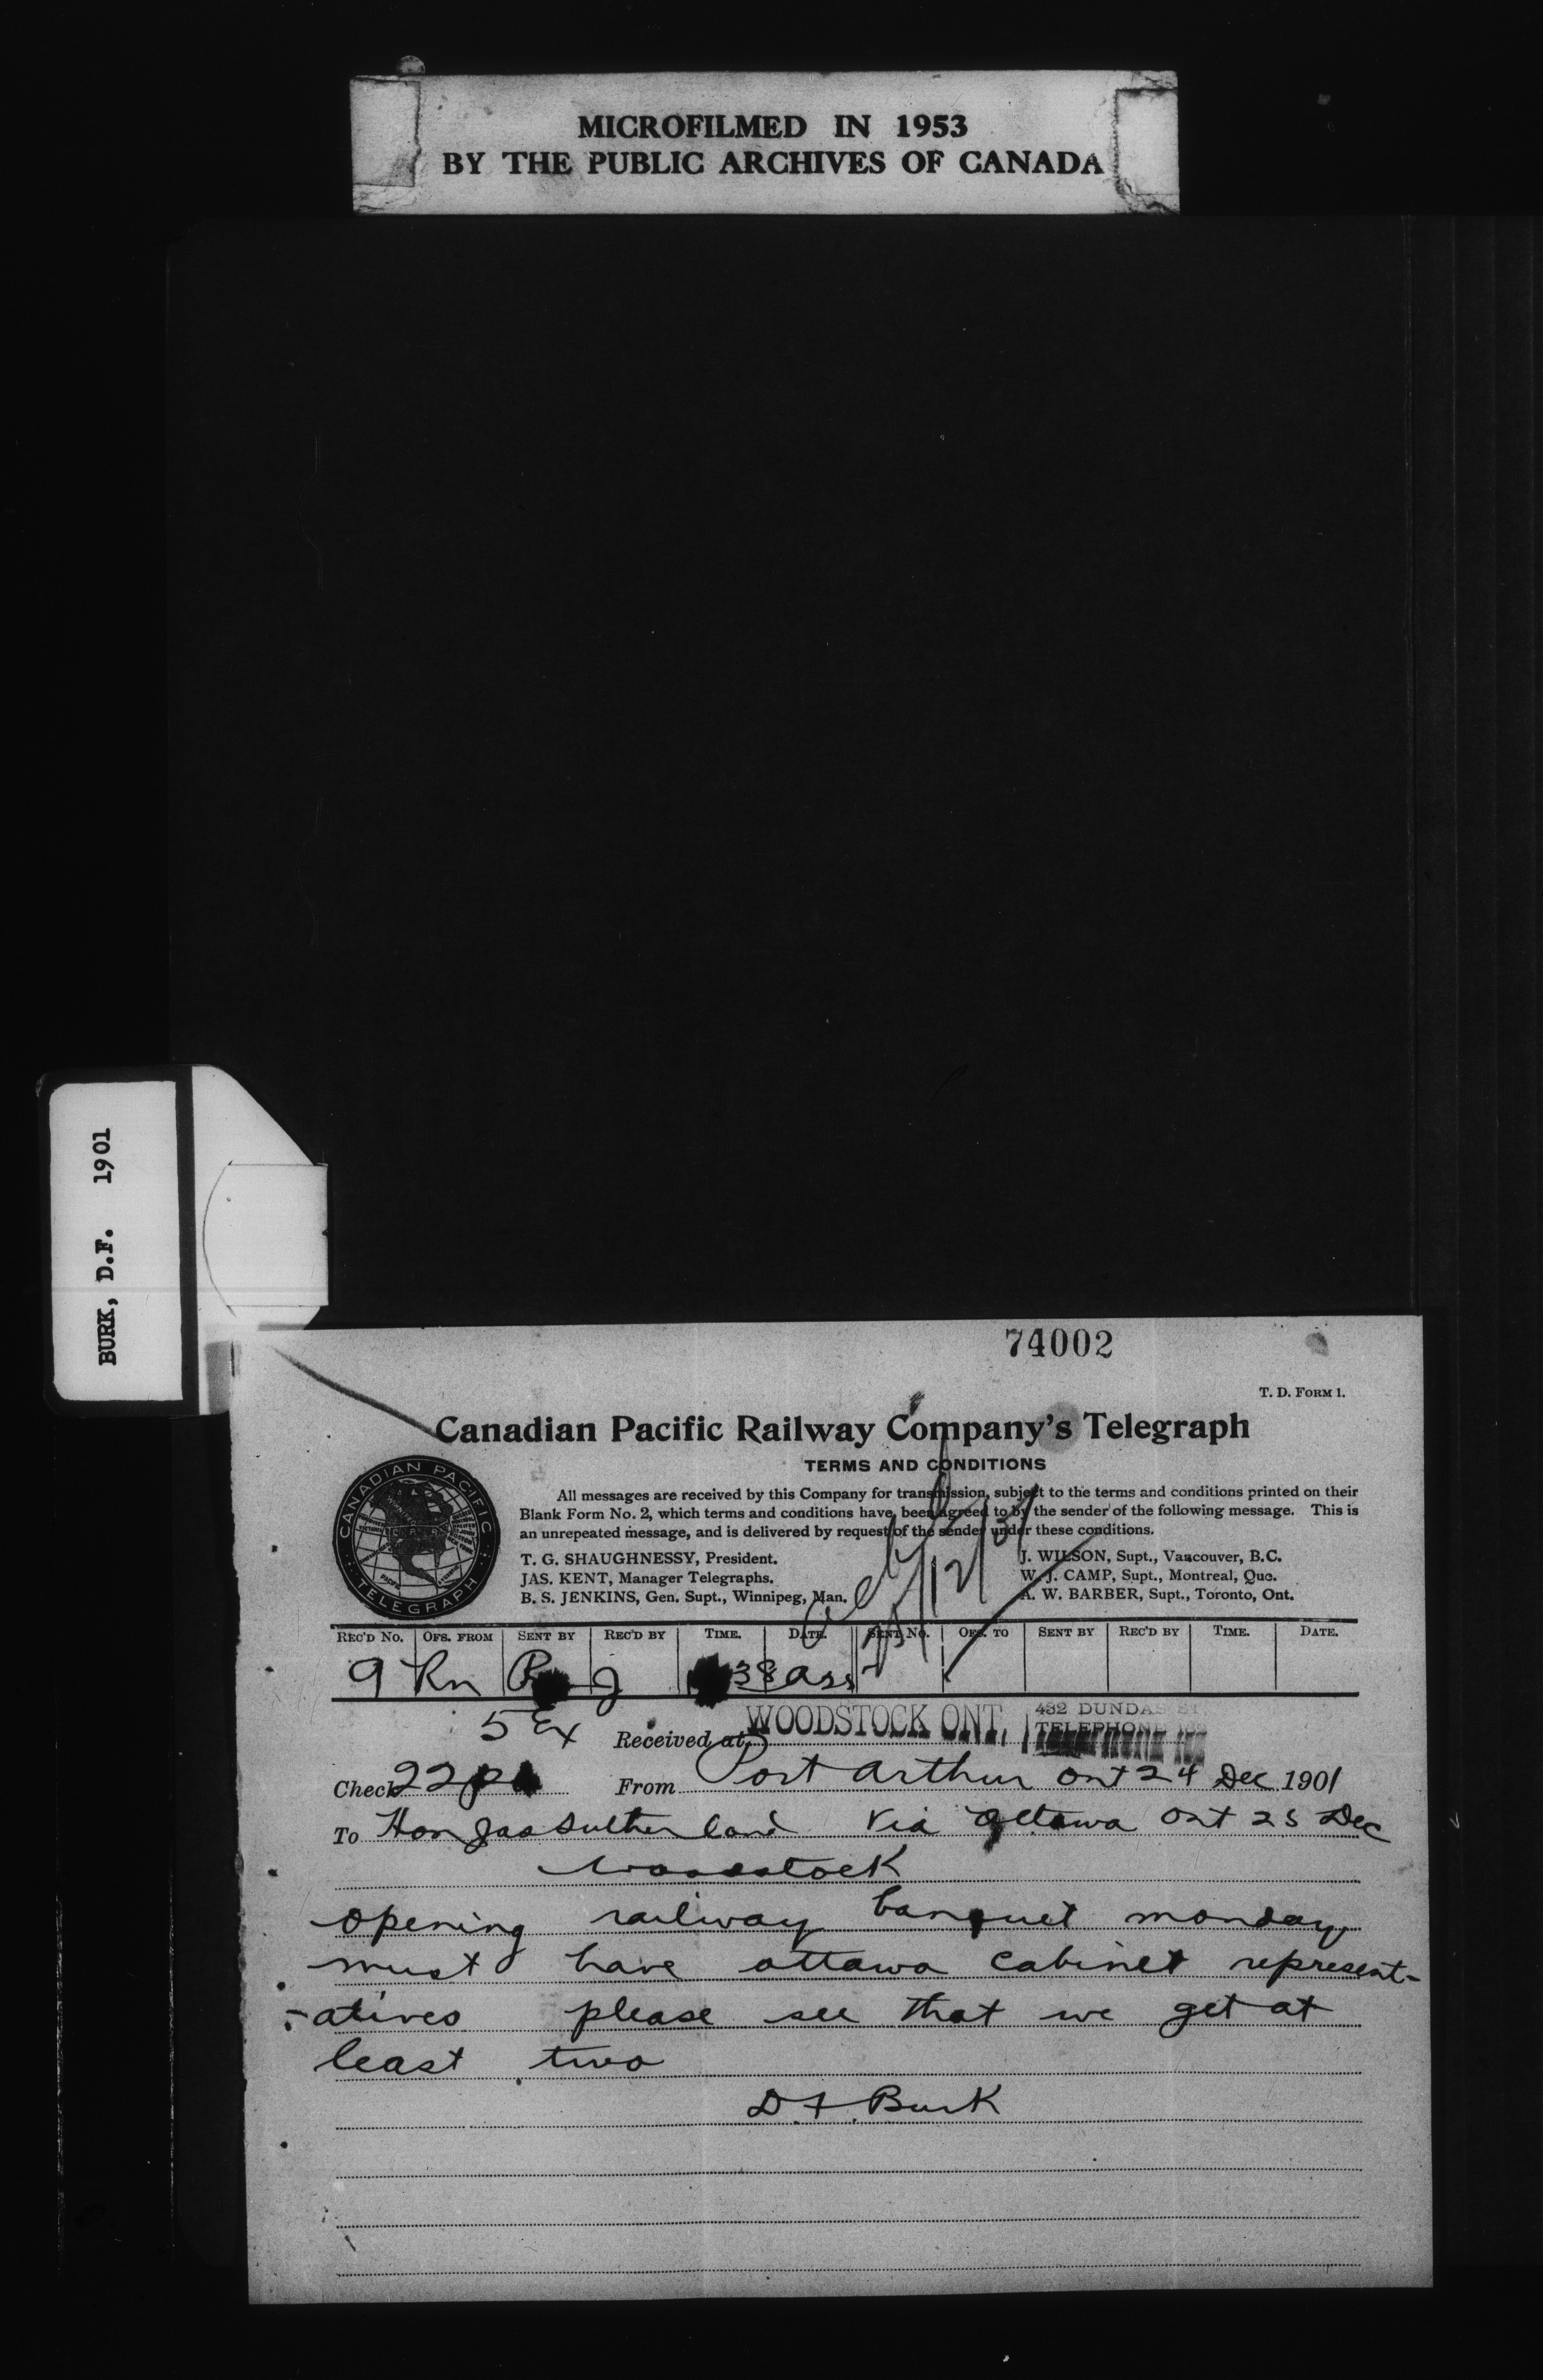 MICROFILMED IN 1953
BY THE PUBLIC ARCHIVES OF CANADA
BURK, D.F. 1901
74002
T. D. FORM 1.
Canadian Pacific Railway Company's Telegraph
TERMS AND CONDITIONS
CANADIAN PACIFIC
TELEGRAPH
All messages are received by this Company for transmission, subject to the terms and conditions printed on their
Blank Form No. 2, which terms and conditions have been agreed to by the sender of the following message. This is
an unrepeated message, and is delivered by request of the sender under these conditions.
T. G. SHAUGHNESSY, President.
JAS. KENT, Manager Telegraphs.
B. S. JENKINS, Gen. Supt., Winnipeg, Man.
J. WILSON, Supt., Vancouver, B.C.
W. J. CAMP, Supt., Montreal, Que.
A. W. BARBER, Supt., Toronto, Ont.
REC'D No. OFS. FROM SENT BY REC'D BY TIME. DATE. SENT No. OFS. TO SENT BY REC'D BY TIME. DATE.
9 Rn
5 Ex Received at WOODSTOCK ONT. 432 DUNDAS ST
TELEPHONE
Check 22 From Port Arthur Ont 24 Dec 1901
To Hon Jas Sutherland Via Ottawa Ont 25 Dec
Woodstock
opening railway banquet monday
must have ottawa cabinet represent-
-atives please see that we get at
least two
D.F. Burk